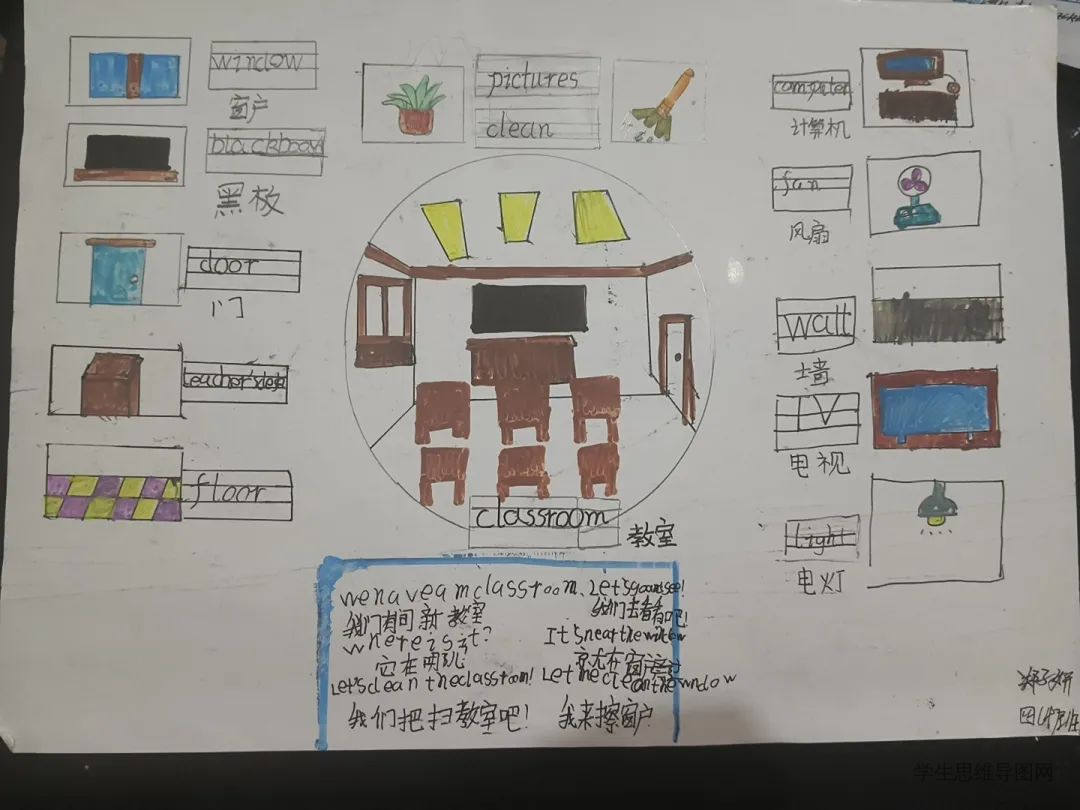 window
窗户
blackboard
黑板
door
门
teacher's desk
floor
pictures
clean
computer
计算机
fan
风扇
wall
墙
TV
电视
light
电灯
classroom
教室
we have classroom. Let's go and see!
我们有间新教室 我们去看看吧!
where is it? It's near the window
它在哪儿 窗户
Let's clean the classroom! Let me clean the window
我们把扫教室吧! 我来擦窗户
学生思维导图网